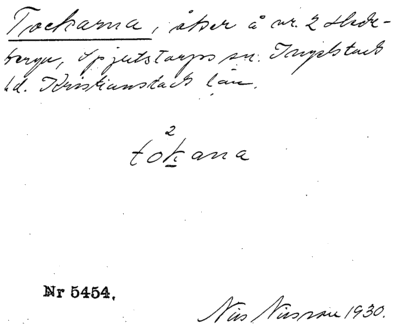 Tockarna, åker å nr. 2 Hede-
berga, Spjutstorps sn. Ingelstads
hd. Kristianstads län.
2
tokana
Nr 5454.
Nils Nilsson 1930.